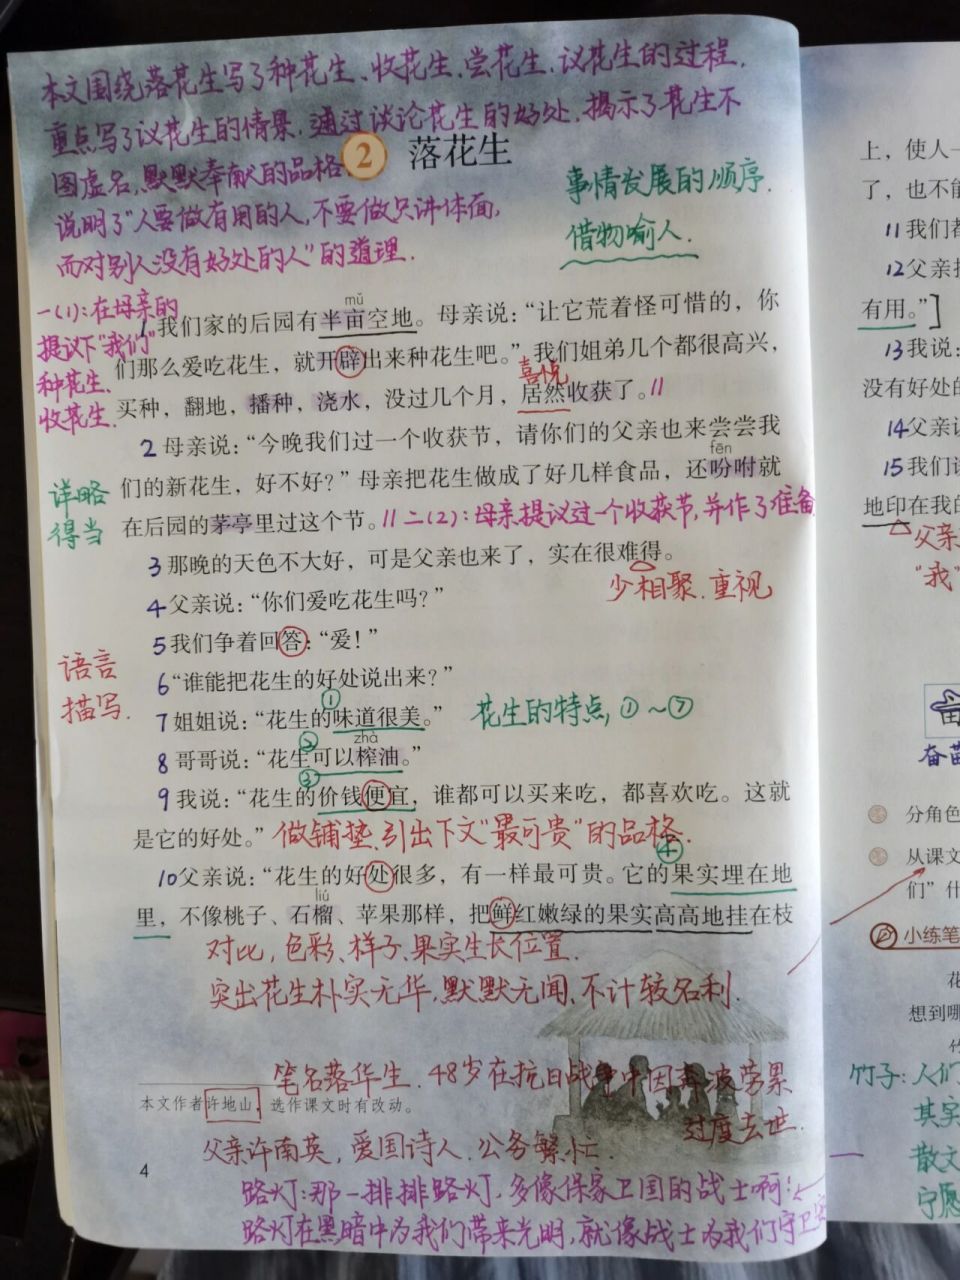 本文围绕落花生写了种花生、收花生、尝花生、议花生的过程.
重点写了议花生的情景,通过谈论花生的好处,揭示了花生不
图虚名,默默奉献的品格.
说明了"人要做有用的人,不要做只讲体面,
而对别人没有好处的人"的道理.
2 落花生
事情发展的顺序.
借物喻人.
一(1):在母亲的
提议下"我们"
种花生、
收花生.
mǔ
1 我们家的后园有半亩空地。母亲说:“让它荒着怪可惜的,你
们那么爱吃花生,就开辟出来种花生吧。”我们姐弟几个都很高兴,
喜悦
买种,翻地,播种,浇水,没过几个月,居然收获了。//
2 母亲说:“今晚我们过一个收获节,请你们的父亲也来尝尝我
fēn
们的新花生,好不好?”母亲把花生做成了好几样食品,还吩咐就
在后园的茅亭里过这个节。// 二(2):母亲提议过一个收获节,并作了准备
详略
得当
3 那晚的天色不大好,可是父亲也来了,实在很难得。
少相聚.重视
4 父亲说:“你们爱吃花生吗?”
5 我们争着回答:“爱!”
语言
描写.
6 “谁能把花生的好处说出来?”
①
7 姐姐说:“花生的味道很美。”
花生的特点,①~⑦
② zhà
8 哥哥说:“花生可以榨油。”
③
9 我说:“花生的价钱便宜,谁都可以买来吃,都喜欢吃。这就
是它的好处。” 做铺垫.引出下文"最可贵"的品格.
④
10 父亲说:“花生的好处很多,有一样最可贵。它的果实埋在地
liú
里,不像桃子、石榴、苹果那样,把鲜红嫩绿的果实高高地挂在枝
对比,色彩、样子、果实生长位置.
突出花生朴实无华,默默无闻、不计较名利.
笔名落华生.48岁在抗日战争中因奔波劳累
过度去世.
本文作者许地山,选作课文时有改动。
父亲许南英,爱国诗人.公务繁忙.
4
路灯:那一排排路灯,多像保家卫国的战士啊!
路灯在黑暗中为我们带来光明,就像战士为我们守卫
上,使人一
了,也不能
11 我们都
12 父亲
有用。”]
13 我说:
没有好处的
14 父亲说
15 我们谈
地印在我的
父亲
"我"
奋苗
分角色
从课文
们”什
小练笔
花
想到哪
竹
竹子:人们
其实
散文
宁愿